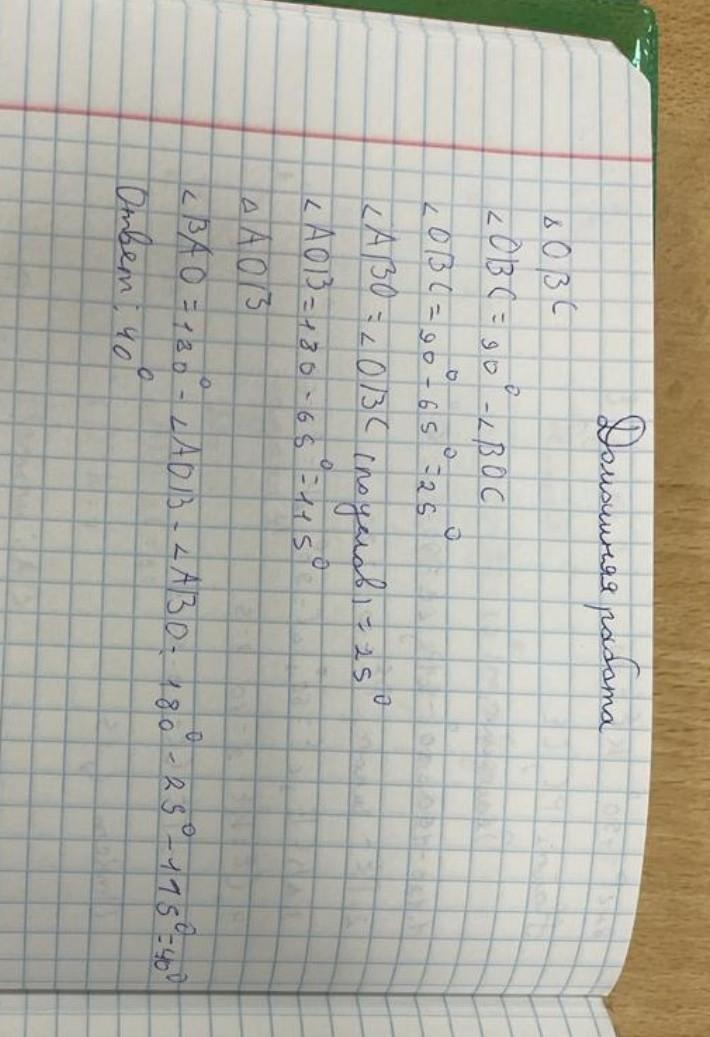 Домашняя работа
△OBC
∠OBC = 90° - ∠BOC
∠OBC = 90° - 65° = 25°
∠ABO = ∠OBC (по услов) = 25°
∠AOB = 180 - 65° = 115°
△AOB
∠BAO = 180° - ∠AOB - ∠ABO = 180° - 25° - 115° = 40°
Ответ: 40°